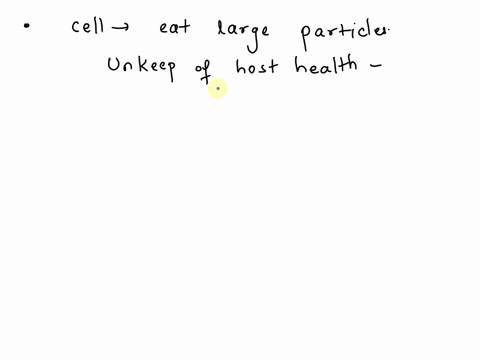 • cell → eat large particles.
Unkeep of host health –